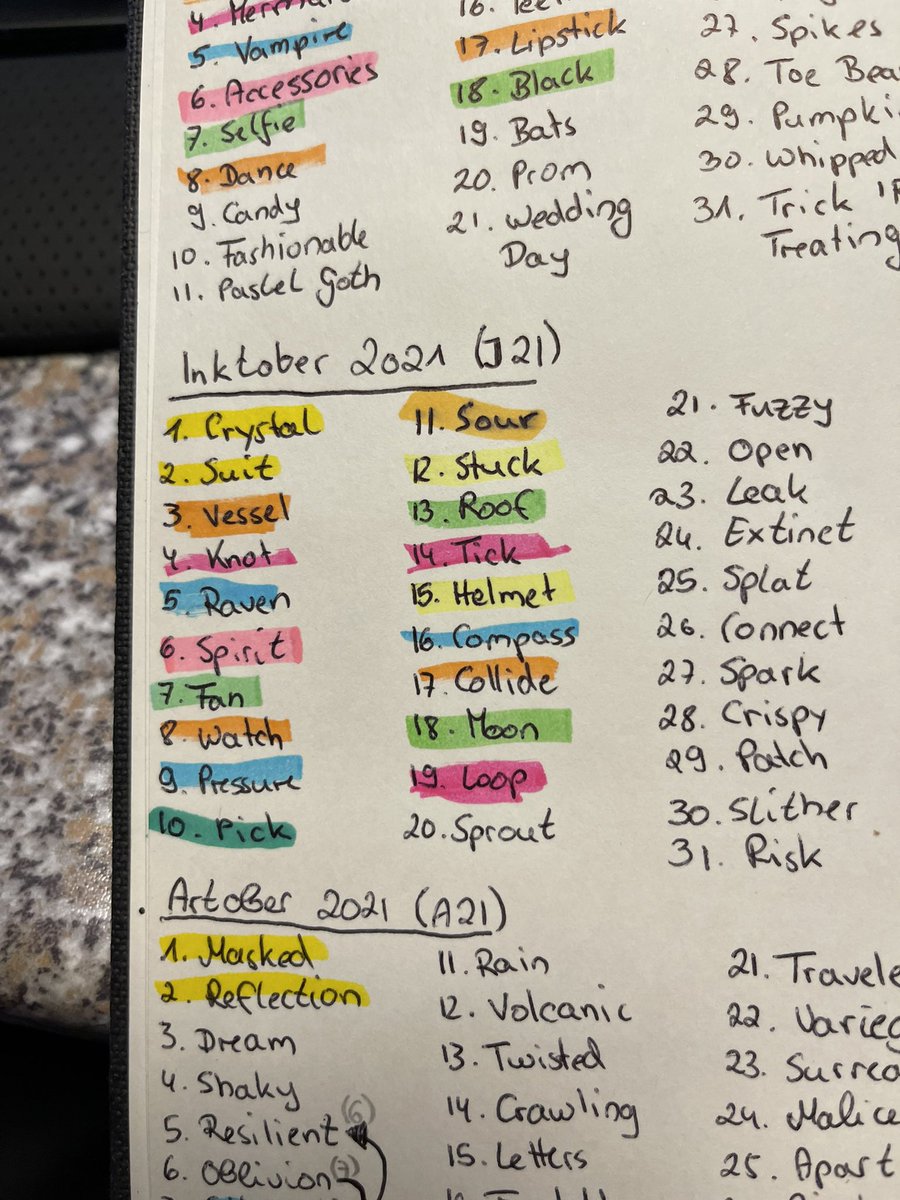 4.
5. Vampire
6. Accessories
7. Selfie
8. Dance
9. Candy
10. Fashionable
11. Pastel Goth
16.
17. Lipstick
18. Black
19. Bats
20. Prom
21. Wedding
Day
27. Spikes
28. Toe
29.
30. Whipped
31. Trick
Treating
Inktober 2021 (J21)
1. Crystal
2. Suit
3. Vessel
4. Knot
5. Raven
6. Spirit
7. Fan
8. Watch
9. Pressure
10. Pick
11. Sour
12. Stuck
13. Roof
14. Tick
15. Helmet
16. Compass
17. Collide
18. Moon
19. Loop
20. Sprout
21. Fuzzy
22. Open
23. Leak
24. Extinct
25. Splat
26. Connect
27. Spark
28. Crispy
29. Patch
30. Slither
31. Risk
Artober 2021 (A21)
1. Masked
2. Reflection
3. Dream
4. Shaky
5. Resilient (6)
6. Oblivion (7)
11. Rain
12. Volcanic
13. Twisted
14. Crawling
15. Letters
21.
22.
23.
24. Malice
25. Apart